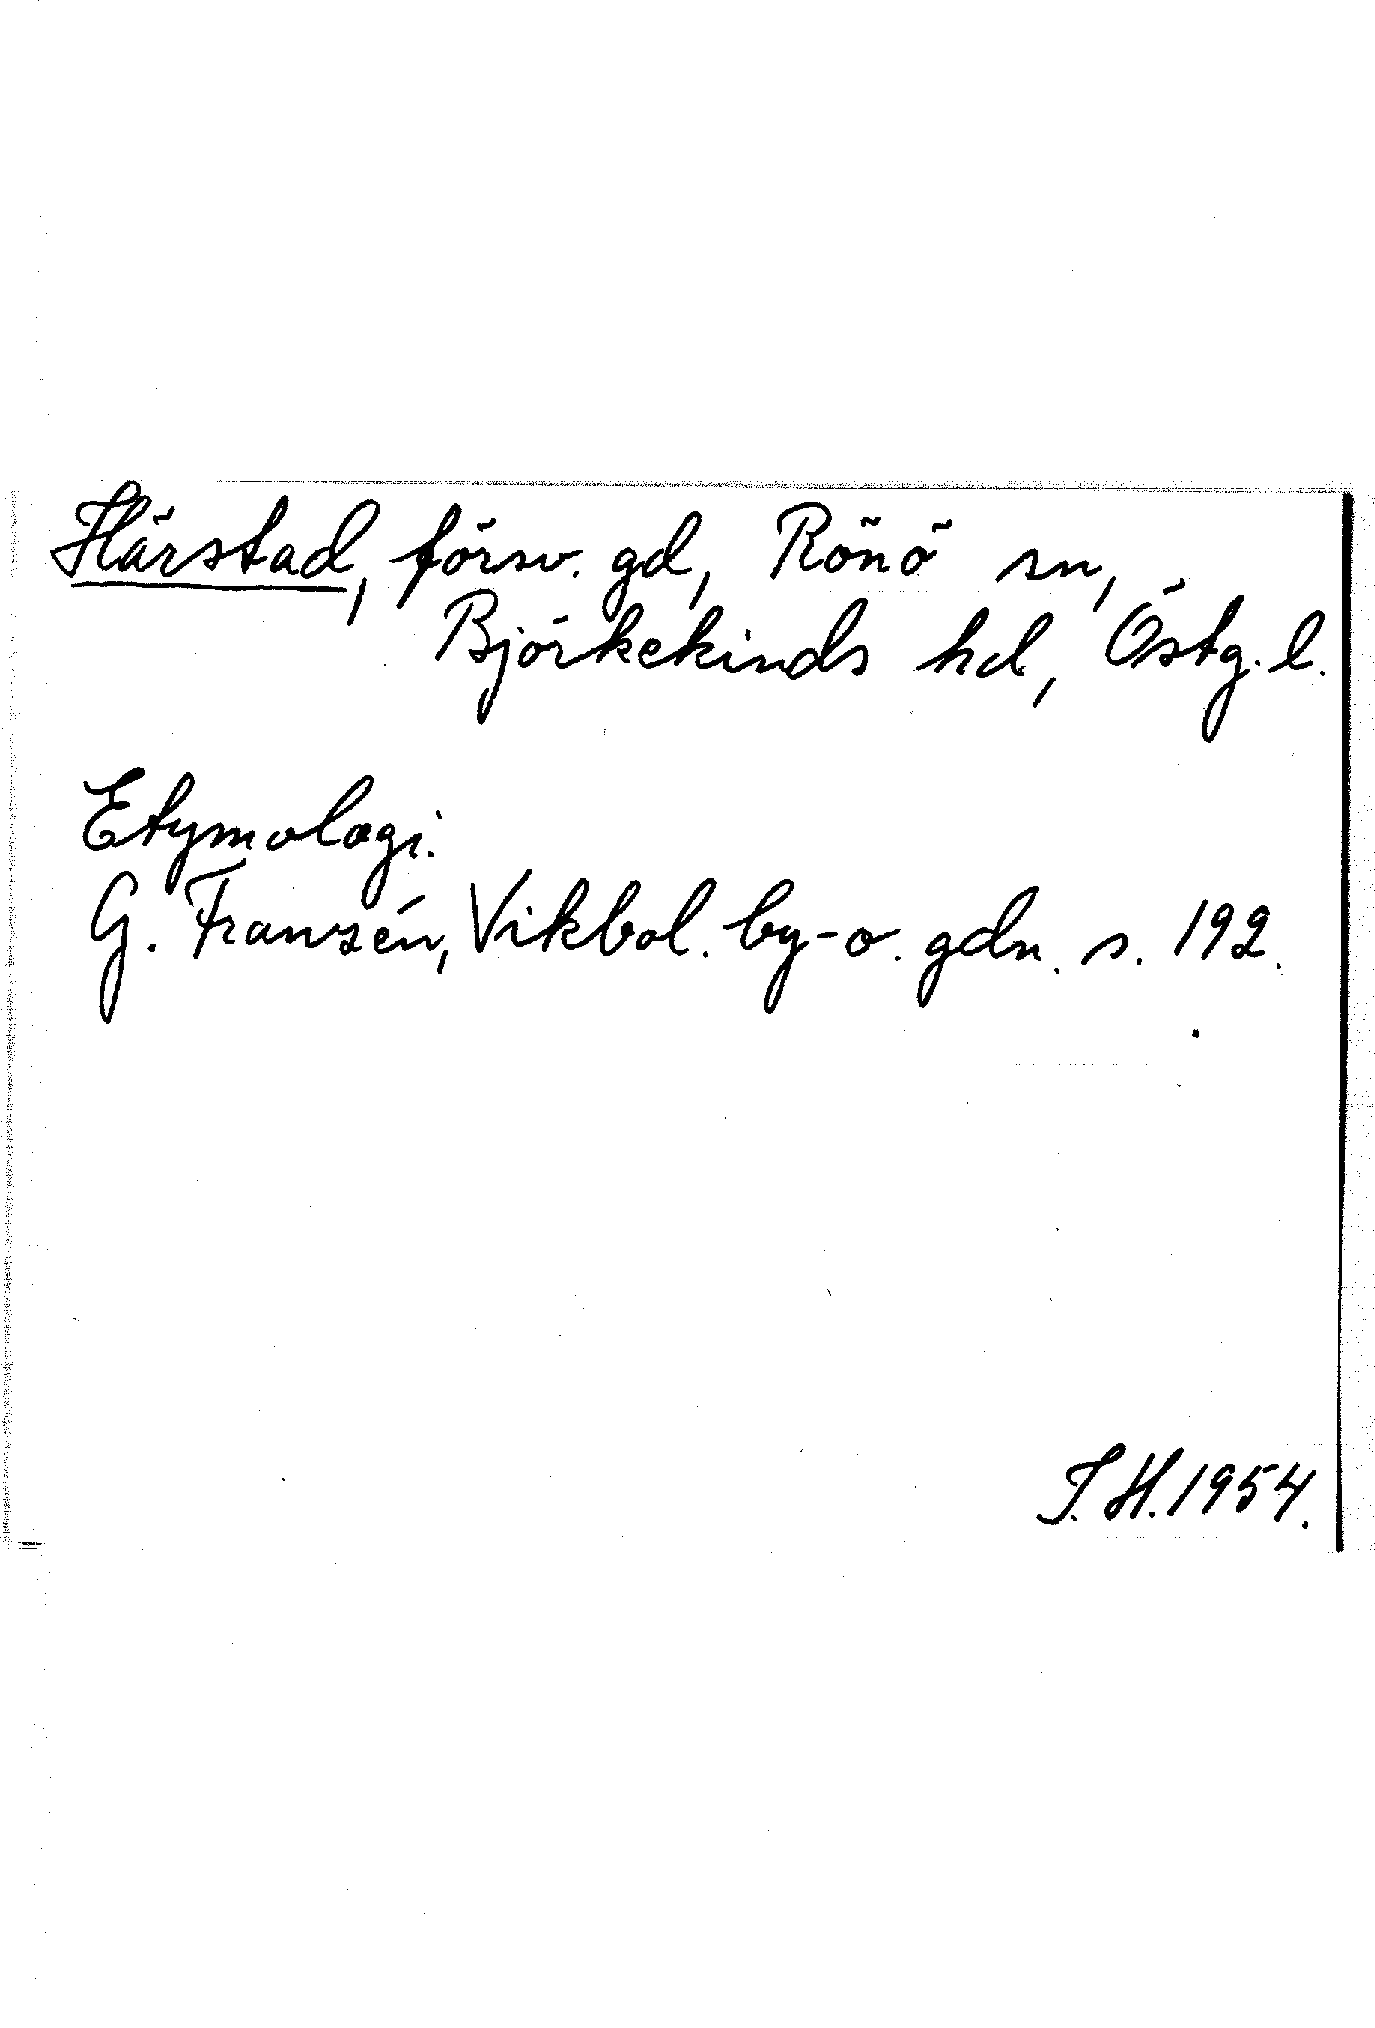 Härstad, försv. gd, Rönö sn,
Björkekinds hd, Östg. l.
Etymologi.
G. Franzén, Vikbol. by- o. gdn. s. 192.
T. H. 1954.